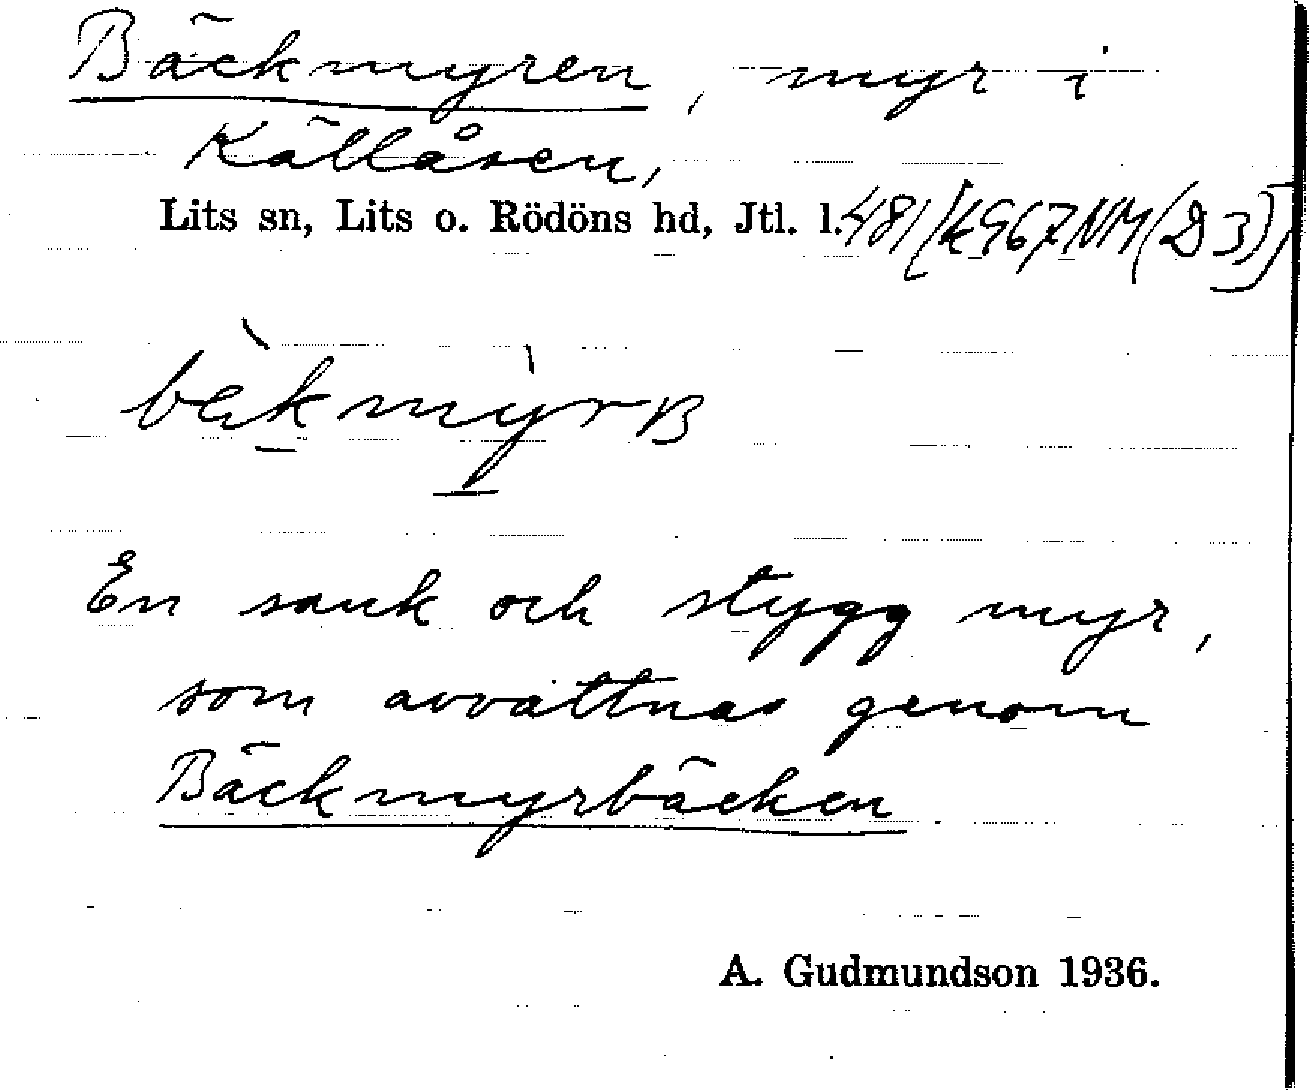 Bäckmyren, myr i
Källåsen,
Lits sn, Lits o. Rödöns hd, Jtl. l.
En sank och stygg myr,
som avvattnas genom
Bäckmyrbäcken
A. Gudmundson 1936.